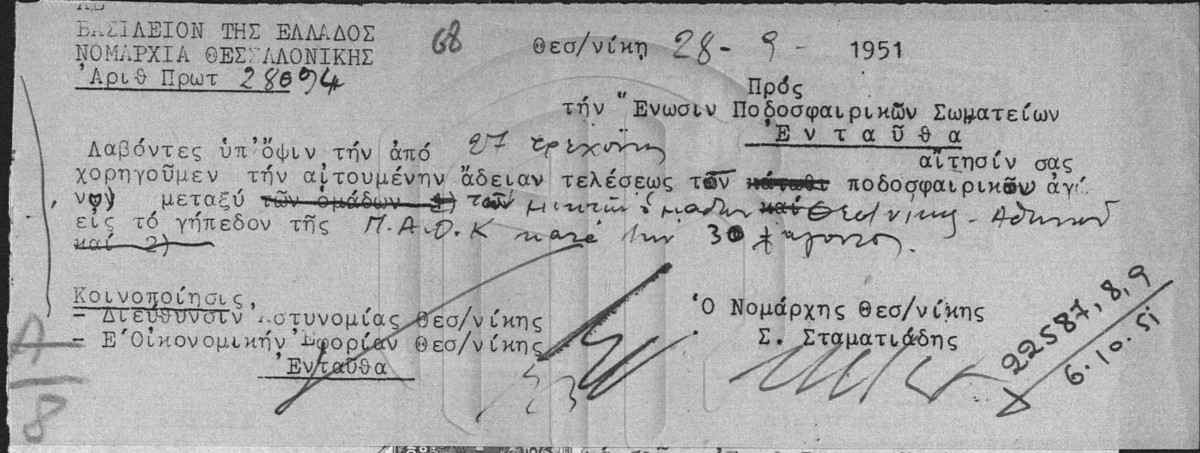 ΒΑΣΙΛΕΙΟΝ ΤΗΣ ΕΛΛΑΔΟΣ
ΝΟΜΑΡΧΙΑ ΘΕΣΣΑΛΟΝΙΚΗΣ
Ἀριθ Πρωτ 28694
68
Θεσ/νίκη 28 - 9 - 1951
Πρός
τήν Ἕνωσιν Ποδοσφαιρικῶν Σωματείων
Ἐνταῦθα
Λαβόντες ὑπ'ὄψιν τήν ἀπό 27 τρέχοντος αἴτησίν σας
χορηγοῦμεν τήν αἰτουμένην ἄδειαν τελέσεως τοῦ κάτωθι ποδοσφαιρικοῦ ἀγῶ
νος μεταξύ τῶν ὁμάδων 1) τῶν μικτῶν ὁμάδων καί Θεσ/νίκης - Ἀθηνῶν
εἰς τό γήπεδον τῆς Π.Α.Ο.Κ κατά τήν 30 ἄγοντος.
καί 2)
Κοινοποίησις
- Διεύθυνσιν Ἀστυνομίας Θεσ/νίκης
- Ε΄Οἰκονομικήν Ἐφορίαν Θεσ/νίκης
Ἐνταῦθα
Ὁ Νομάρχης Θεσ/νίκης
Σ. Σταματιάδης
22587,8,9
6.10.51
Α/8